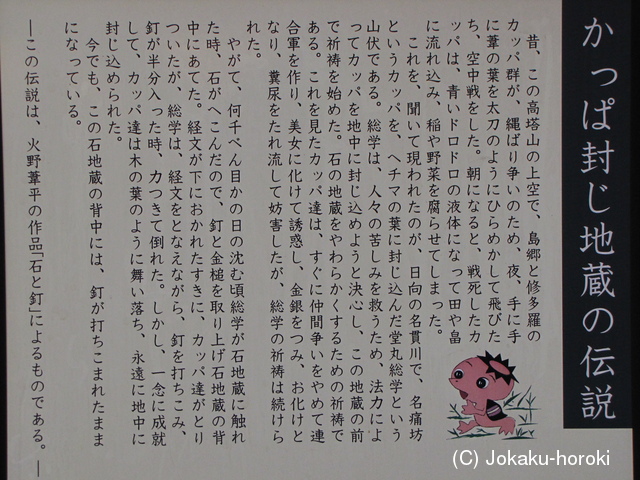 かっぱ封じ地蔵の伝説
昔、この高塔山の上空で、島郷と修多羅の
カッパ群が、縄ばり争いのため、夜、手に手
に葦の葉を太刀のようにひらめかして飛びた
ち、空中戦をした。朝になると、戦死したカ
ッパは、青いドロドロの液体になって田や畠
に流れ込み、稲や野菜を腐らせてしまった。
これを、聞いて現われたのが、日向の名貫川で、名痛坊
というカッパを、ヘチマの葉に封じ込んだ堂丸総学という
山伏である。総学は、人々の苦しみを救うため、法力によ
ってカッパを地中に封じ込めようと決心し、この地蔵の前
で祈祷を始めた。石の地蔵をやわらかくするための祈祷で
ある。これを見たカッパ達は、すぐに仲間争いをやめて連
合軍を作り、美女に化けて誘惑し、金銀をつみ、お化けと
なり、糞尿をたれ流して妨害したが、総学の祈祷は続けら
れた。
やがて、何千べん目かの日の沈む頃総学が石地蔵に触れ
た時、石がへこんだので、釘と金槌を取り上げ石地蔵の背
中にあてた。経文が下におかれたすきに、カッパ達がとり
ついたが、総学は、経文をとなえながら、釘を打ちこみ、
釘が半分入った時、力つきて倒れた。しかし、一念に成就
して、カッパ達は木の葉のように舞い落ち、永遠に地中に
封じ込められた。
今でも、この石地蔵の背中には、釘が打ちこまれたまま
になっている。
―この伝説は、火野葦平の作品「石と釘」によるものである。―
(C) Jokaku-horoki